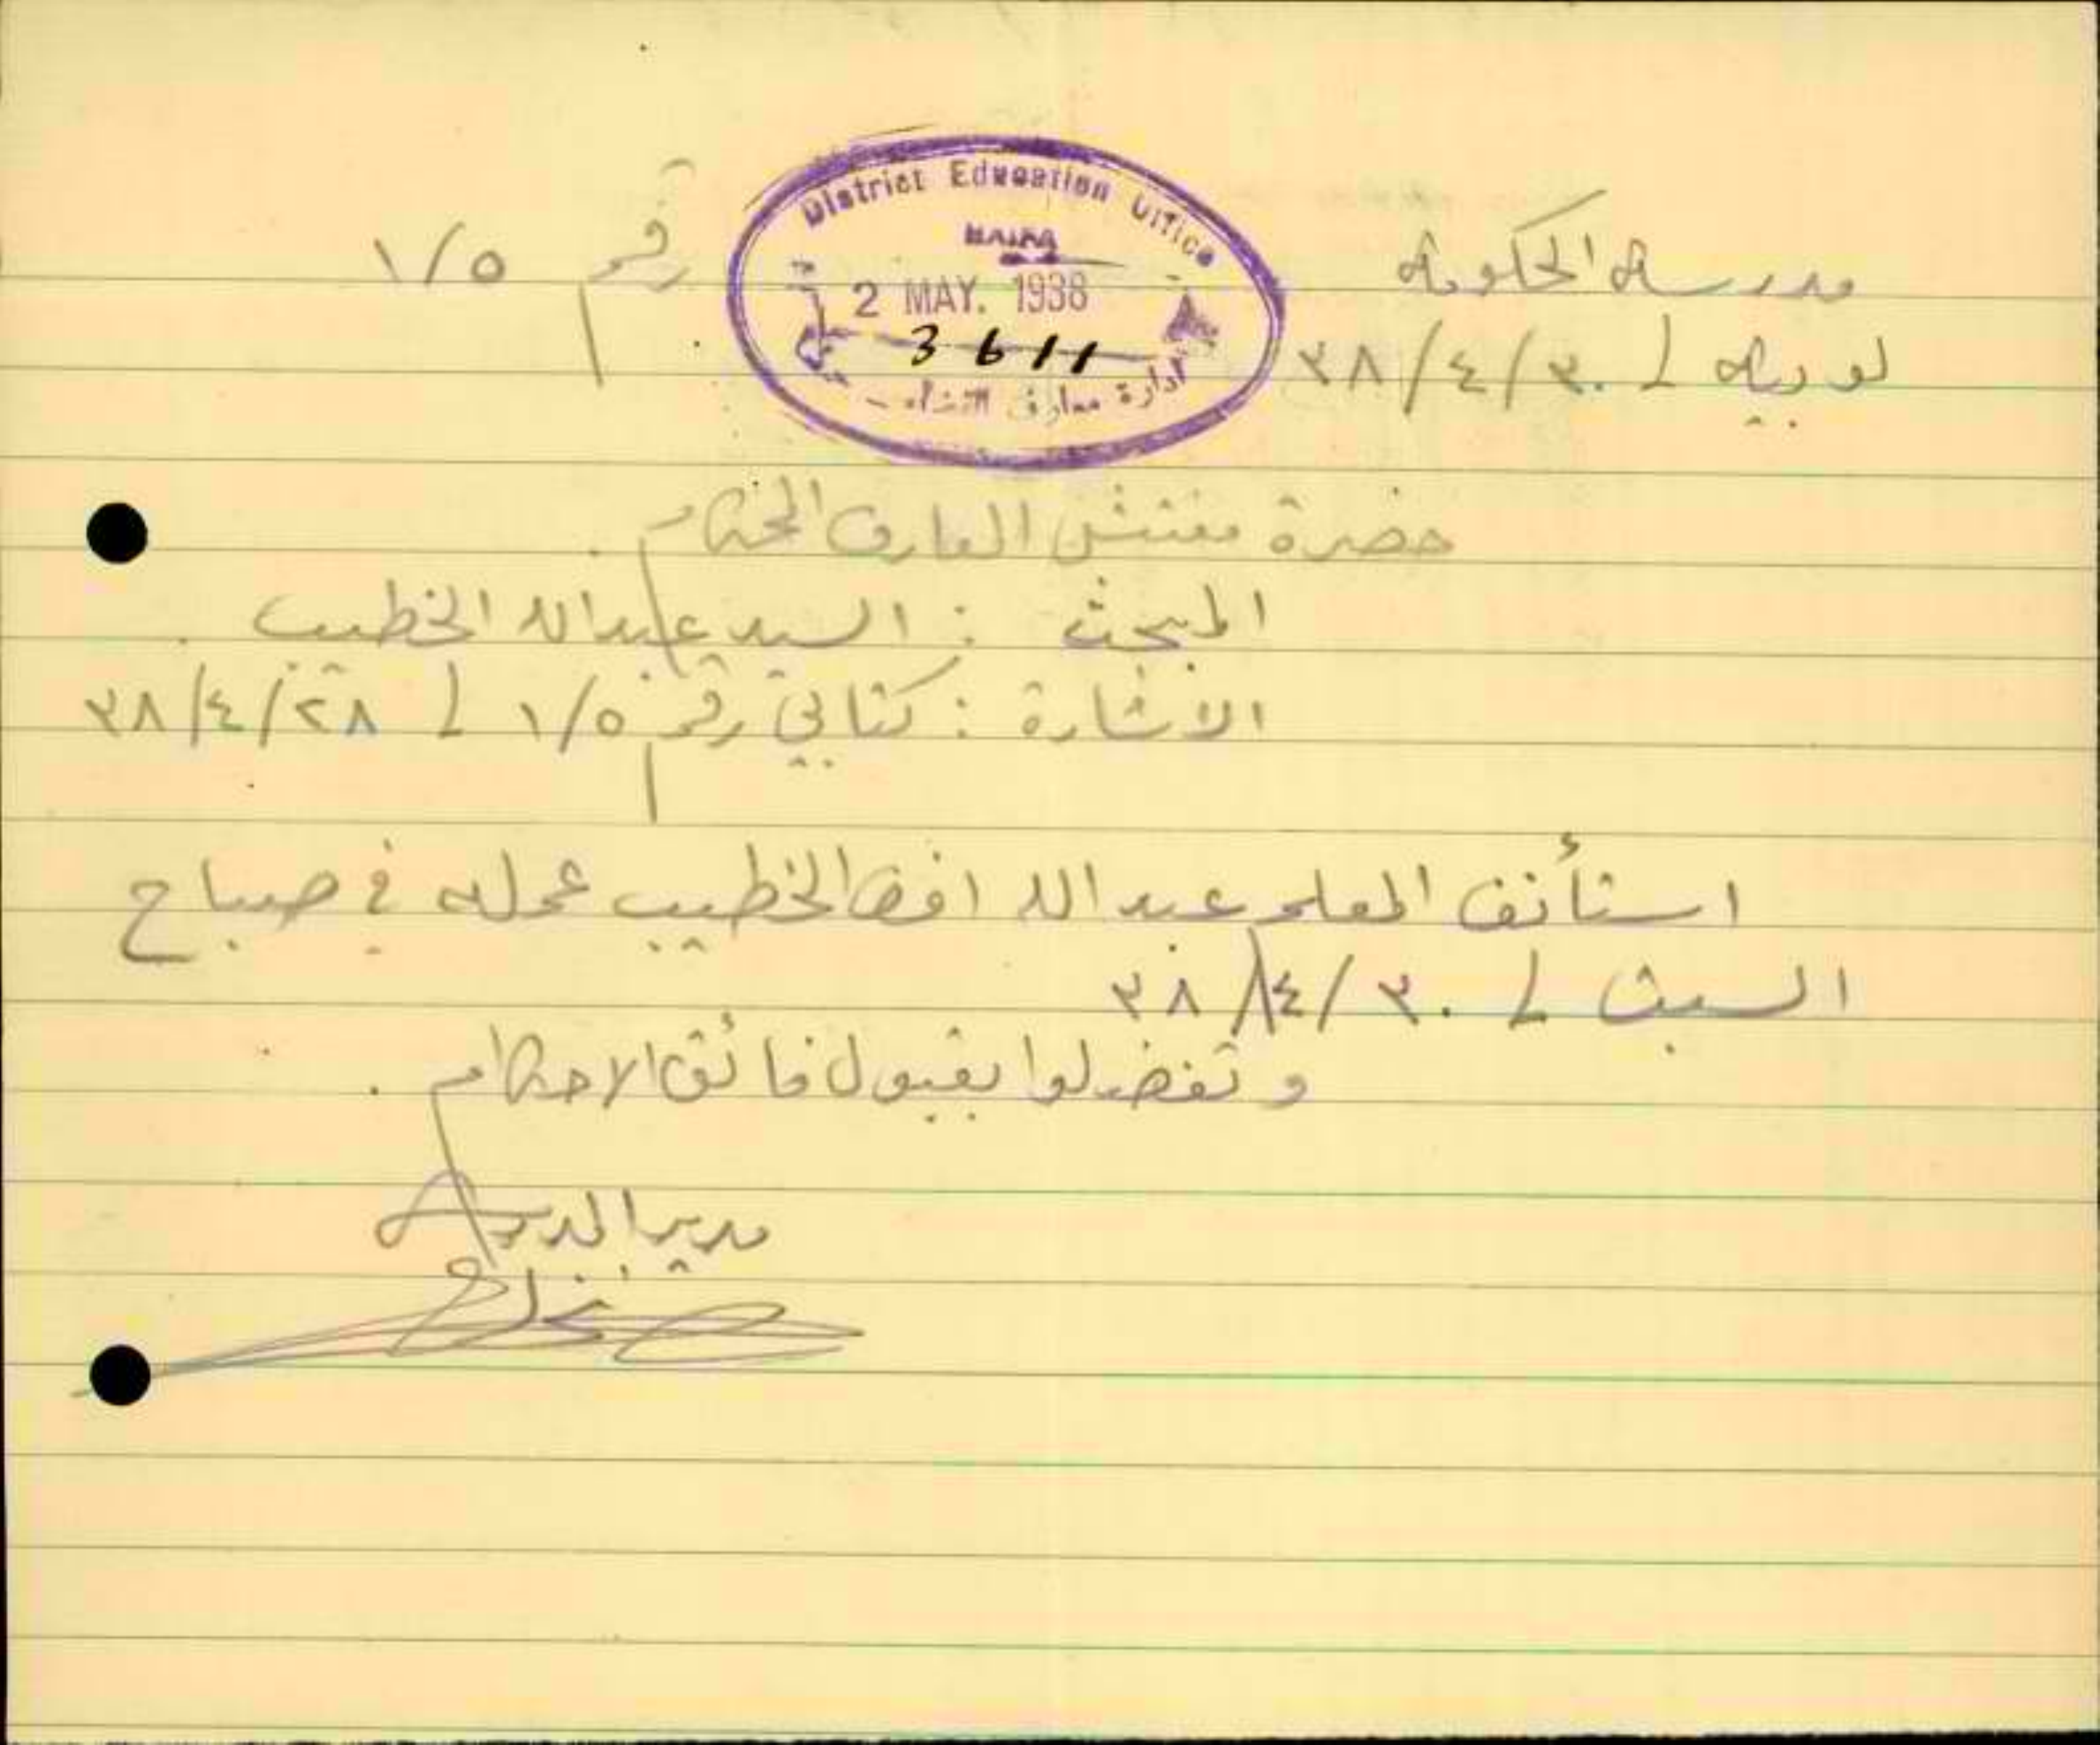 مدرسة الحكومة
رقم ١/٥
لوبيه في ٣٨/٤/٣٠
District Education Office
HAIFA
2 MAY. 1938
3611
ادارة معارف اللواء
حضرة مفتش المعارف المحترم.
المبحث : السيد عبدالله الخطيب.
الاشارة : كتابي رقم ١/٥ في ٣٨/٤/٢٨
استأنف المعلم عبدالله افندي الخطيب عمله في صباح
السبت في ٣٨/٤/٣٠
وتفضلوا بقبول فائق الاحترام.
مدير المدرسة